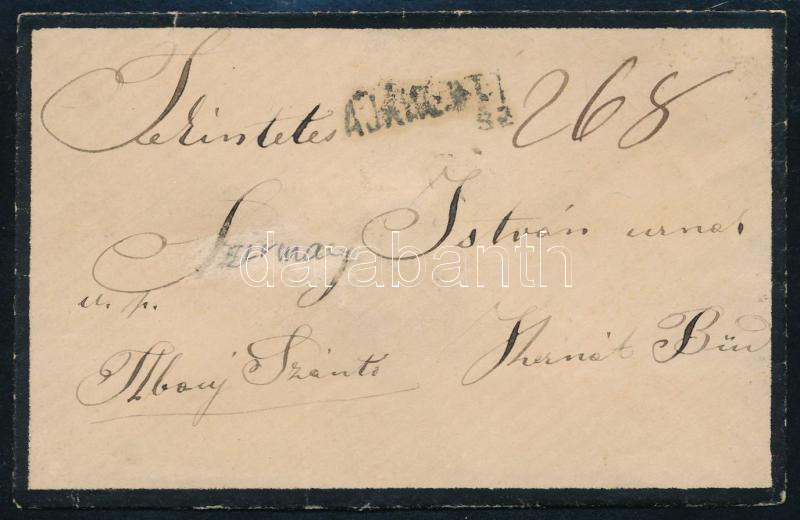 Tekintetes AJÁNLOTT 268
52
Szirmay István urnak
u. p.
Abauj Szántó Hernát Büd
darabanth